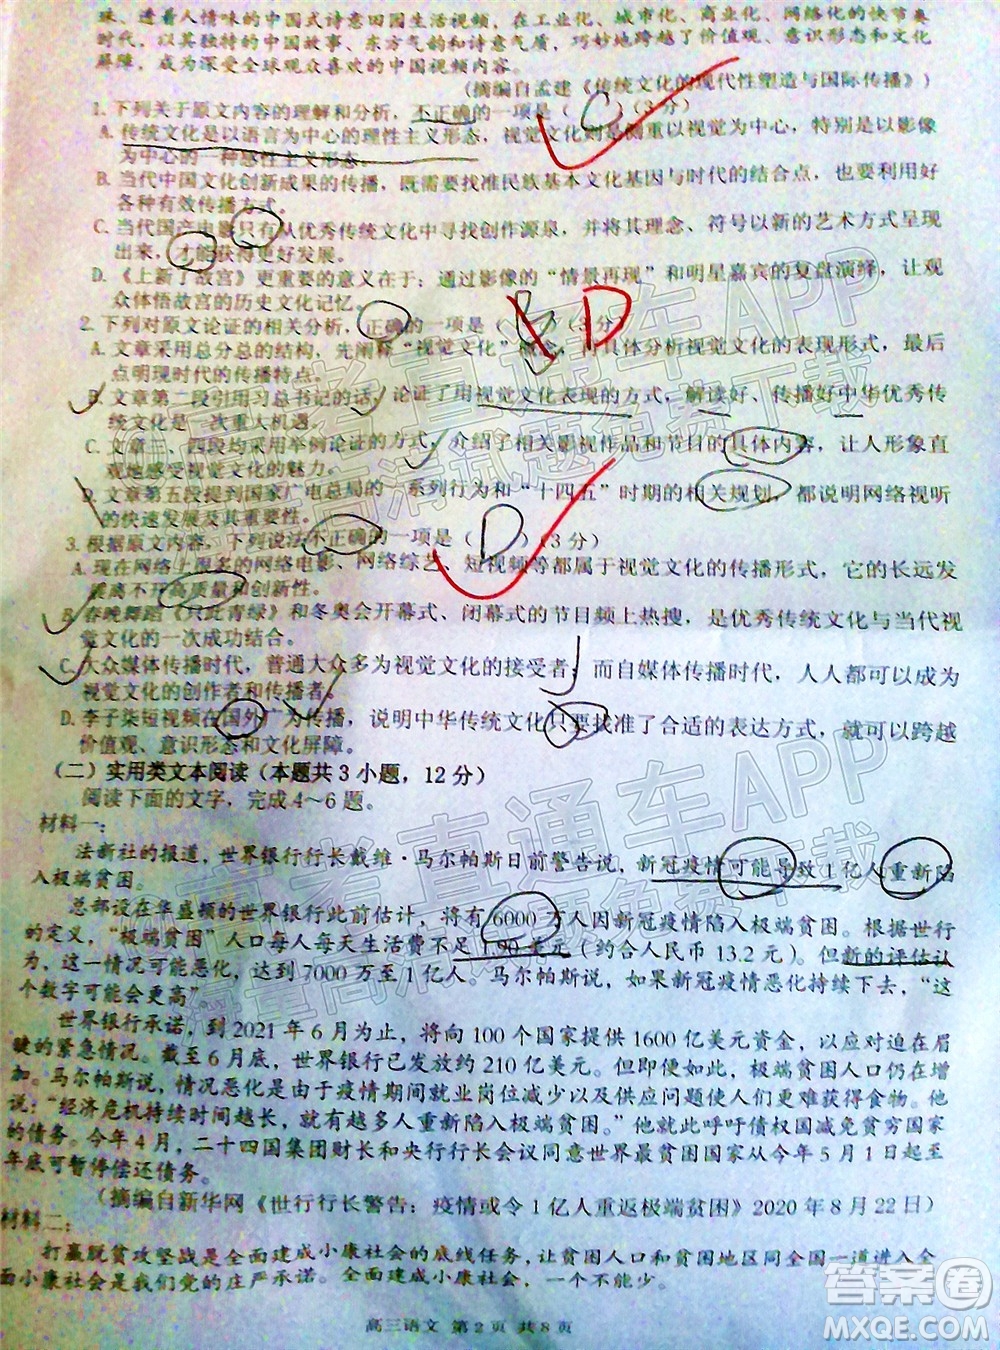 珠、透着人情味的中国式诗意田园生活视频，在工业化、城市化、商业化、网络化的快节奏
时代，以其独特的中国故事、东方气质和诗意气质，巧妙地跨越了价值观、意识形态和文化
屏障，成为深受全球观众喜欢的中国视频内容。
（摘编自孟建《传统文化的现代性塑造与国际传播》）
1.下列关于原文内容的理解和分析，不正确的一项是（ C ）（3分）
A.传统文化是以语言为中心的理性主义形态，视觉文化则是侧重以视觉为中心，特别是以影像
为中心的一种感性主义形态。
B.当代中国文化创新成果的传播，既需要找准民族基本文化基因与时代的结合点，也要用好
各种有效传播方式。
C.当代国产电影只有从优秀传统文化中寻找创作源泉，并将其理念、符号以新的艺术方式呈现
出来，才能获得更好发展。
D.《上新了故宫》更重要的意义在于：通过影像的“情景再现”和明星嘉宾的复盘演绎，让观
众体悟故宫的历史文化记忆。
2.下列对原文论证的相关分析，正确的一项是（ ）（3分） D
A.文章采用总分总的结构，先阐释“视觉文化”概念，再具体分析视觉文化的表现形式，最后
点明现时代的传播特点。
B.文章第二段引用习总书记的话，论证了用视觉文化表现的方式，解读好、传播好中华优秀传
统文化是一次重大机遇。
C.文章三、四段均采用举例论证的方式，介绍了相关影视作品和节目的具体内容，让人形象直
观地感受到视觉文化的魅力。
D.文章第五段提到国家广电总局的一系列行为和“十四五”时期的相关规划，都说明网络视听
的快速发展及其重要性。
3.根据原文内容，下列说法不正确的一项是（ D ）（3分）
A.现在网络上很多的网络电影、网络综艺、短视频等都属于视觉文化的传播形式，它的长远发
展离不开高质量和创新性。
B.春晚舞蹈《只此青绿》和冬奥会开幕式、闭幕式的节目频上热搜，是优秀传统文化与当代视
觉文化的一次成功结合。
C.大众媒体传播时代，普通大众多为视觉文化的接受者；而自媒体传播时代，人人都可以成为
视觉文化的创作者和传播者。
D.李子柒短视频在国外广为传播，说明中华传统文化只要找准了合适的表达方式，就可以跨越
价值观、意识形态和文化屏障。
（二）实用类文本阅读（本题共3小题，12分）
阅读下面的文字，完成4～6题。
材料一：
法新社的报道，世界银行行长戴维·马尔帕斯日前警告说，新冠疫情可能导致1亿人重新陷
入极端贫困。
总部设在华盛顿的世界银行此前估计，将有6000万人因新冠疫情陷入极端贫困。根据世行
的定义，“极端贫困”人口每人每天生活费不足1.90美元（约合人民币13.2元）。但新的评估认
为，这一情况可能恶化，达到7000万至1亿人。马尔帕斯说，如果新冠疫情恶化持续下去，“这
个数字可能会更高”。
世界银行承诺，到2021年6月为止，将向100个国家提供1600亿美元资金，以应对迫在眉
睫的紧急情况。截至6月底，世界银行已经拨款约210亿美元。但即便如此，极端贫困人口仍在增
加。马尔帕斯说，情况恶化是由于疫情期间就业岗位减少以及供应问题使人们更难获得食物。他
说：“经济危机持续时间越长，就有越多人重新陷入极端贫困。”他就此呼吁债权国减免贫穷国家
的债务。今年4月，二十四国集团财长和央行行长会议同意世界最贫困国家从今年5月1日起至
年底可暂停偿还债务。
（摘编自新华网《世行行长警告：疫情或令1亿人重返极端贫困》2020年8月22日）
材料二：
打赢脱贫攻坚战是全面建成小康社会的底线任务，让贫困人口和贫困地区同全国一道进入全
面小康社会是我们党的庄严承诺。全面建成小康社会，一个不能少。
高三语文 第2页 共8页
高考直通车APP
高考直通车APP
答案圈
MXQE.COM